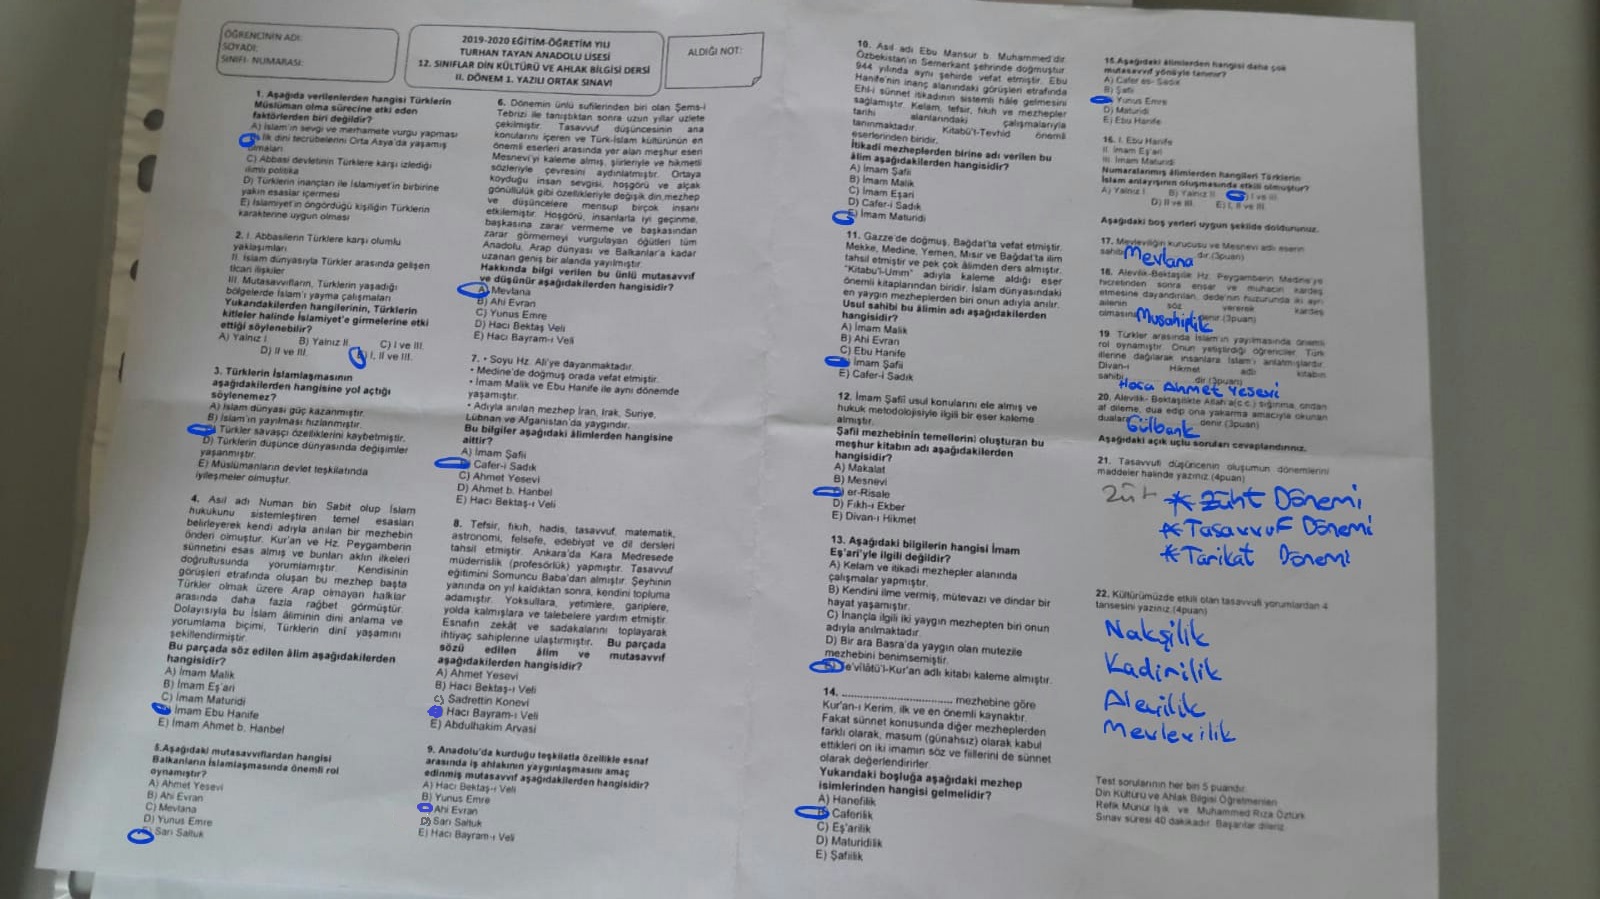 ÖĞRENCİNİN ADI:
SOYADI:
SINIFI- NUMARASI:
2019-2020 EĞİTİM-ÖĞRETİM YILI
TURHAN TAYAN ANADOLU LİSESİ
12. SINIFLAR DİN KÜLTÜRÜ VE AHLAK BİLGİSİ DERSİ
II. DÖNEM 1. YAZILI ORTAK SINAVI
ALDIĞI NOT:
1. Aşağıda verilenlerden hangisi Türklerin
Müslüman olma sürecine etki eden
faktörlerden biri değildir?
A) İslam'ın sevgi ve merhamete vurgu yapması
ilk dinî tecrübelerini Orta Asya'da yaşamış
olmaları
C) Abbasi devletinin Türklere karşı izlediği
ılımlı politika
D) Türklerin inançları ile İslamiyet'in birbirine
yakın esaslar içermesi
E) İslamiyet'in öngördüğü kişiliğin Türklerin
karakterine uygun olması
2. I. Abbasilerin Türklere karşı olumlu
yaklaşımları
II. İslam dünyasıyla Türkler arasında gelişen
ticari ilişkiler
III. Mutasavvıfların, Türklerin yaşadığı
bölgelerde İslam'ı yayma çalışmaları
Yukarıdakilerden hangilerinin, Türklerin
kitleler halinde İslamiyet'e girmelerine etki
ettiği söylenebilir?
A) Yalnız I. B) Yalnız II. C) I ve III.
D) II ve III. E) I, II ve III.
3. Türklerin İslamlaşmasının
aşağıdakilerden hangisine yol açtığı
söylenemez?
A) İslam dünyası güç kazanmıştır.
B) İslam'ın yayılması hızlanmıştır.
Türkler savaşçı özelliklerini kaybetmiştir.
D) Türklerin düşünce dünyasında değişimler
yaşanmıştır.
E) Müslümanların devlet teşkilatında
iyileşmeler olmuştur.
4. Asıl adı Numan bin Sabit olup İslam
hukukunu sistemleştiren temel esasları
belirleyerek kendi adıyla anılan bir mezhebin
önderi olmuştur. Kur'an ve Hz. Peygamberin
sünnetini esas almış ve bunları aklın ilkeleri
doğrultusunda yorumlamıştır. Kendisinin
görüşleri etrafında oluşan bu mezhep başta
Türkler olmak üzere Arap olmayan halklar
arasında daha fazla rağbet görmüştür.
Dolayısıyla bu İslam âliminin dini anlama ve
yorumlama biçimi, Türklerin dinî yaşamını
şekillendirmiştir.
Bu parçada söz edilen âlim aşağıdakilerden
hangisidir?
A) İmam Malik
B) İmam Eş'ari
C) İmam Maturidi
İmam Ebu Hanife
E) İmam Ahmet b. Hanbel
5.Aşağıdaki mutasavvıflardan hangisi
Balkanların İslamlaşmasında önemli rol
oynamıştır?
A) Ahmet Yesevi
B) Ahi Evran
C) Mevlana
D) Yunus Emre
E) Sarı Saltuk
6. Dönemin ünlü sufilerinden biri olan Şems-i
Tebrizi ile tanıştıktan sonra uzun yıllar uzlete
çekilmiştir. Tasavvuf düşüncesinin ana
konularını içeren ve Türk-İslam kültürünün en
önemli eserleri arasında yer alan meşhur eseri
Mesnevi'yi kaleme almış, şiirleriyle ve hikmetli
sözleriyle çevresini aydınlatmıştır. Ortaya
koyduğu insan sevgisi, hoşgörü ve alçak
gönüllülük gibi özellikleriyle değişik din,mezhep
ve düşüncelere mensup birçok insanı
etkilemiştir. Hoşgörü, insanlarla iyi geçinme,
başkasına zarar vermeme ve başkasından
zarar görmemeyi vurgulayan öğütleri tüm
Anadolu, Arap dünyası ve Balkanlar'a kadar
uzanan geniş bir alanda yayılmıştır.
Hakkında bilgi verilen bu ünlü mutasavvıf
ve düşünür aşağıdakilerden hangisidir?
A) Mevlana
B) Ahi Evran
C) Yunus Emre
D) Hacı Bektaş Veli
E) Hacı Bayram-ı Veli
7. • Soyu Hz. Ali'ye dayanmaktadır.
• Medine'de doğmuş orada vefat etmiştir.
• İmam Malik ve Ebu Hanife ile aynı dönemde
yaşamıştır.
• Adıyla anılan mezhep İran, Irak, Suriye,
Lübnan ve Afganistan'da yaygındır.
Bu bilgiler aşağıdaki âlimlerden hangisine
aittir?
A) İmam Şafii
Cafer-i Sadık
C) Ahmet Yesevi
D) Ahmet b. Hanbel
E) Hacı Bektaş-ı Veli
8. Tefsir, fıkıh, hadis, tasavvuf, matematik,
astronomi, felsefe, edebiyat ve dil dersleri
tahsil etmiştir. Ankara'da Kara Medresede
müderrislik (profesörlük) yapmıştır. Tasavvuf
eğitimini Somuncu Baba'dan almıştır. Şeyhinin
yanında on yıl kaldıktan sonra, kendini topluma
adamıştır. Yoksullara, yetimlere, gariplere,
yolda kalmışlara ve talebelere yardım etmiştir.
Esnafın zekât ve sadakalarını toplayarak
ihtiyaç sahiplerine ulaştırmıştır. Bu parçada
sözü edilen âlim ve mutasavvıf
aşağıdakilerden hangisidir?
A) Ahmet Yesevi
B) Hacı Bektaş-ı Veli
C) Sadrettin Konevi
Hacı Bayram-ı Veli
E) Abdulhakim Arvasi
9. Anadolu'da kurduğu teşkilatla özellikle esnaf
arasında iş ahlakının yaygınlaşmasını amaç
edinmiş mutasavvıf aşağıdakilerden hangisidir?
A) Hacı Bektaş-ı Veli
B) Yunus Emre
Ahi Evran
D) Sarı Saltuk
E) Hacı Bayram-ı Veli
10. Asıl adı Ebu Mansur b. Muhammed'dir.
Özbekistan'ın Semerkant şehrinde doğmuştur.
944 yılında aynı şehirde vefat etmiştir. Ebu
Hanife'nin inanç alanındaki görüşleri etrafında
Ehl-i sünnet itikadının sistemli hâle gelmesini
sağlamıştır. Kelam, tefsir, fıkıh ve mezhepler
tarihi alanlarındaki çalışmalarıyla
tanınmaktadır. Kitâbü't-Tevhid önemli
eserlerinden biridir.
İtikadi mezheplerden birine adı verilen bu
âlim aşağıdakilerden hangisidir?
A) İmam Şafii
B) İmam Malik
C) İmam Eşari
D) Cafer-i Sadık
E) İmam Maturidi
11. Gazze'de doğmuş, Bağdat'ta vefat etmiştir.
Mekke, Medine, Yemen, Mısır ve Bağdat'ta ilim
tahsil etmiştir ve pek çok âlimden ders almıştır.
"Kitabu'l-Umm" adıyla kaleme aldığı eser
önemli kitaplarından biridir. İslam dünyasındaki
en yaygın mezheplerden biri onun adıyla anılır.
Usul sahibi bu âlimin adı aşağıdakilerden
hangisidir?
A) İmam Malik
B) Ahi Evran
C) Ebu Hanife
İmam Şafii
E) Cafer-i Sadık
12. İmam Şafii usul konularını ele almış ve
hukuk metodolojisiyle ilgili bir eser kaleme
almıştır.
Şafii mezhebinin temellerini oluşturan bu
meşhur kitabın adı aşağıdakilerden
hangisidir?
A) Makalat
B) Mesnevi
er-Risale
D) Fıkh-ı Ekber
E) Divan-ı Hikmet
13. Aşağıdaki bilgilerin hangisi İmam
Eş'ari'yle ilgili değildir?
A) Kelam ve itikadi mezhepler alanında
çalışmalar yapmıştır.
B) Kendini ilme vermiş, mütevazı ve dindar bir
hayat yaşamıştır.
C) İnançla ilgili iki yaygın mezhepten biri onun
adıyla anılmaktadır.
D) Bir ara Basra'da yaygın olan mutezile
mezhebini benimsemiştir.
Te'vîlâtü'l-Kur'an adlı kitabı kaleme almıştır.
14. .............................. mezhebine göre
Kur'an-ı Kerim, ilk ve en önemli kaynaktır.
Fakat sünnet konusunda diğer mezheplerden
farklı olarak, masum (günahsız) olarak kabul
ettikleri on iki imamın söz ve fiillerini de sünnet
olarak değerlendirirler.
Yukarıdaki boşluğa aşağıdaki mezhep
isimlerinden hangisi gelmelidir?
A) Hanefilik
Caferilik
C) Eş'arilik
D) Maturidilik
E) Şafiilik
15.Aşağıdaki âlimlerden hangisi daha çok
mutasavvıf yönüyle tanınır?
A) Cafer es- Sadık
B) Şafii
Yunus Emre
D) Maturidi
E) Ebu Hanife
16. I. Ebu Hanife
II. İmam Eş'ari
III. İmam Maturidi
Numaralanmış âlimlerden hangileri Türklerin
İslam anlayışının oluşmasında etkili olmuştur?
A) Yalnız I. B) Yalnız II. I ve III.
D) II ve III. E) I, II ve III.
Aşağıdaki boş yerleri uygun şekilde doldurunuz.
17. Mevleviliğin kurucusu ve Mesnevi adlı eserin
sahibi Mevlana dır.(3puan)
18. Alevilik-Bektaşilik Hz. Peygamberin Medine'ye
hicretinden sonra ensar ve muhaciri kardeş
etmesine dayandırılan, dede'nin huzurunda iki ayrı
ailenin söz vererek kardeş
olmasına Musahiplik denir.(3puan)
19 Türkler arasında İslam'ın yayılmasında önemli
rol oynamıştır. Onun yetiştirdiği öğrenciler, Türk
illerine dağılarak insanlara İslam'ı anlatmışlardır.
Divan-ı Hikmet adlı kitabın
sahibi dir.(3puan)
Hoca Ahmet Yesevi
20. Alevilik- Bektaşilikte Allah'a(c.c.) sığınma, ondan
af dileme, dua edip ona yakarma amacıyla okunan
dualara Gülbank denir (3puan)
Aşağıdaki açık uçlu soruları cevaplandırınız.
21. Tasavvufi düşüncenin oluşumun dönemlerini
maddeler halinde yazınız.(4puan)
* Züht Dönemi
* Tasavvuf Dönemi
* Tarikat Dönemi
22. Kültürümüzde etkili olan tasavvufi yorumlardan 4
tanesini yazınız.(4puan)
Nakşilik
Kadirilik
Alevilik
Mevlevilik
Test sorularının her biri 5 puandır.
Din Kültürü ve Ahlak Bilgisi Öğretmenleri
Refik Münür Işık ve Muhammed Rıza Öztürk
Sınav süresi 40 dakikadır. Başarılar dileriz.